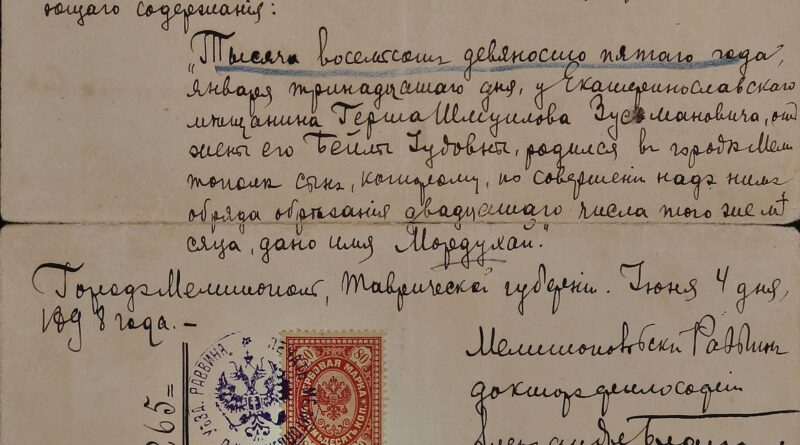 ющаго содержанія:
"Тысяча восемьсотъ девяносто пятаго года,
января тринадцатаго дня, у Екатеринославскаго
мѣщанина Герша Шмуилова Зусмановича, отъ
жены его Бейлы Іудовны, родился въ городѣ Мели
тополѣ сынъ, которому, по совершеніи надъ нимъ
обряда обрѣзанія двадцатаго числа того же мѣ
сяца, дано имя Мордухай."
Городъ Мелитополь, Таврической губерніи. Іюня 4 дня,
1898 года. —
Мелитопольскій Раввинъ
докторъ философіи
УѢЗД. РАВВИНА
80 80
ГЕРБОВАЯ МАРКА
265=